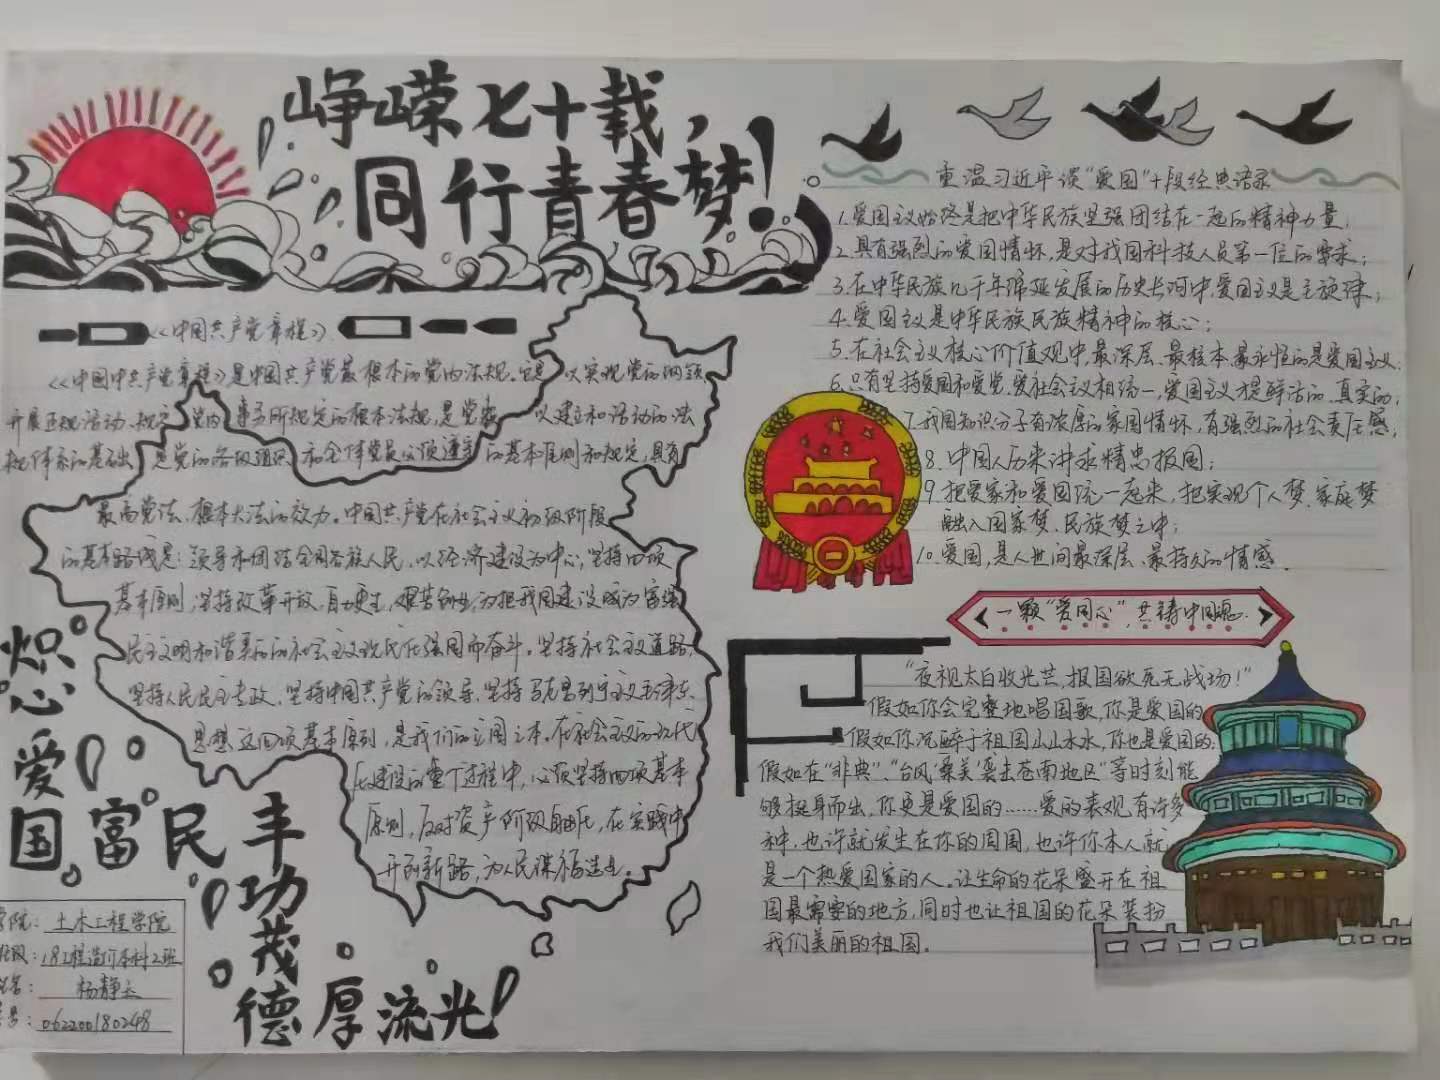 峥嵘七十载，
同行青春梦！
《中国共产党章程》
《中国中共产党章程》是中国共产党最根本的党内法规。它是 以实现党的纲领
开展正规活动、规定党内事务所规定的根本法规，是党赖以建立和活动的法
规体系的基础 是党的各级组织和全体党员必须遵守的基本准则和规定，具有
最高党法、根本大法的效力。中国共产党在社会主义初级阶段
的基本路线是：领导和团结全国各族人民，以经济建设为中心，坚持四项
基本原则，坚持改革开放，自力更生，艰苦创业，为把我国建设成为富强
民主文明和谐美丽的社会主义现代化强国而奋斗。坚持社会主义道路、
坚持人民民主专政、坚持中国共产党的领导、坚持马克思列宁主义毛泽东
思想 这四项基本原则，是我们的立国之本。在社会主义的现代
化建设的整个过程中，必须坚持四项基本
原则，反对资产阶级自由化，在实践中
开创新路，为人民谋福造业。
炽心爱国
国富民丰
丰功茂德
德厚流光！
学院：土木工程学院
班级：18工程造价本科2班
姓名：杨静
学号：062200180248
重温习近平谈“爱国”十段经典语录
1.爱国主义始终是把中华民族坚强团结在一起的精神力量；
2.具有强烈的爱国情怀，是对我国科技人员第一位的要求；
3.在中华民族几千年绵延发展的历史长河中，爱国主义是主旋律；
4.爱国主义是中华民族民族精神的核心；
5.在社会主义核心价值观中，最深层、最根本、最永恒的是爱国主义.
6.只有坚持爱国和爱党、爱社会主义相统一，爱国主义才是鲜活的、真实的；
7.我国知识分子有浓厚的家国情怀，有强烈的社会责任感；
8.中国人历来讲求精忠报国；
9.把爱家和爱国统一起来，把实现个人梦、家庭梦
融入国家梦、民族梦之中；
10.爱国，是人世间最深层、最持久的情感.
一颗“爱国心”，共铸中国魂.
“夜视太白收光芒，报国欲死无战场！”
假如你会完整地唱国歌，你是爱国的
假如你沉醉于祖国山山水水，你也是爱国的；
假如在“非典”、“台风‘桑美’袭击苍南地区”等时刻能
够挺身而出，你更是爱国的……爱的表现有许多
种，也许就发生在你的周围，也许你本人就
是一个热爱国家的人。让生命的花朵盛开在祖
国最需要的地方，同时也让祖国的花朵装扮
我们美丽的祖国。